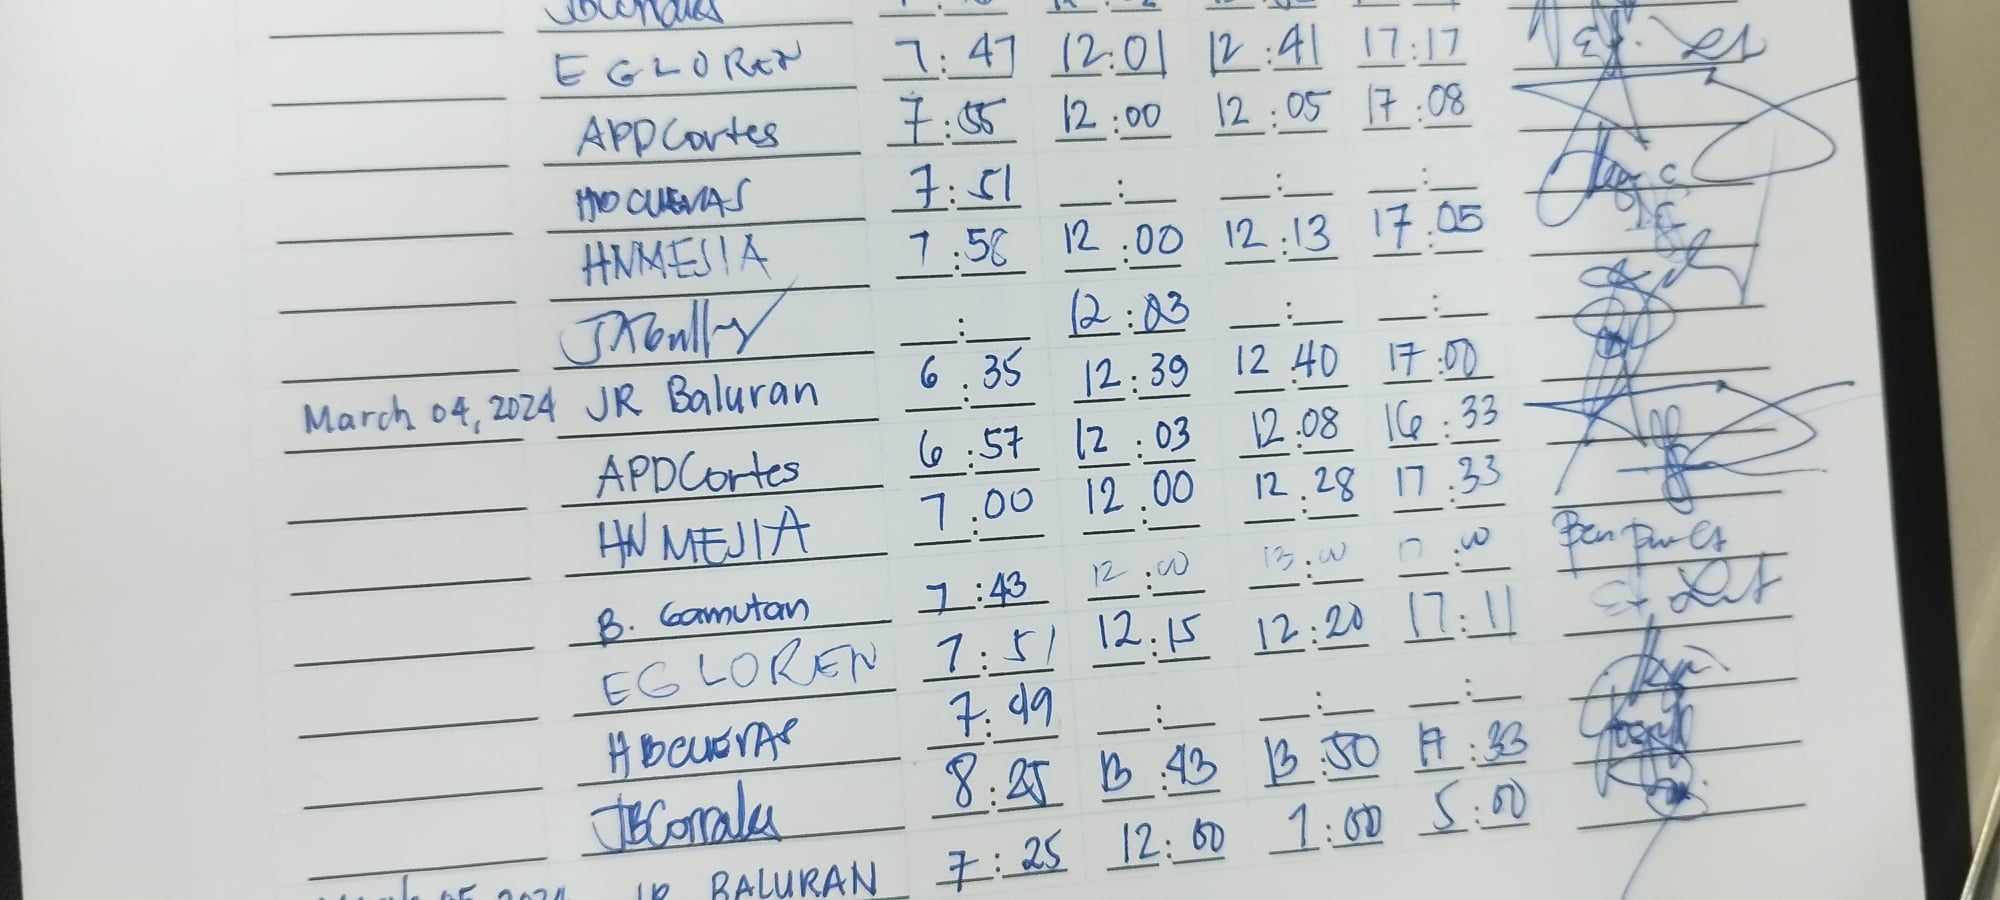 EGLOREN 7:47 12:01 12:41 17:17
APDCortes 7:55 12:00 12:05 17:08
HDCUEVAS 7:51 __:__ __:__ __:__
HNMEJIA 7:58 12:00 12:13 17:05
__:__ 12:03 __:__ __:__
March 04, 2024 JR Baluran 6:35 12:39 12:40 17:00
APDCortes 6:57 12:03 12:08 16:33
HNMEJIA 7:00 12:00 12:28 17:33
B. Gamutan 7:43 12:00 13:00 17:00
EGLOREN 7:51 12:15 12:20 17:11
HDCUEVAS 7:49 __:__ __:__ __:__
JBCorrales 8:25 13:43 13:50 17:33
March 05, 2024 JR BALURAN 7:25 12:00 1:00 5:00